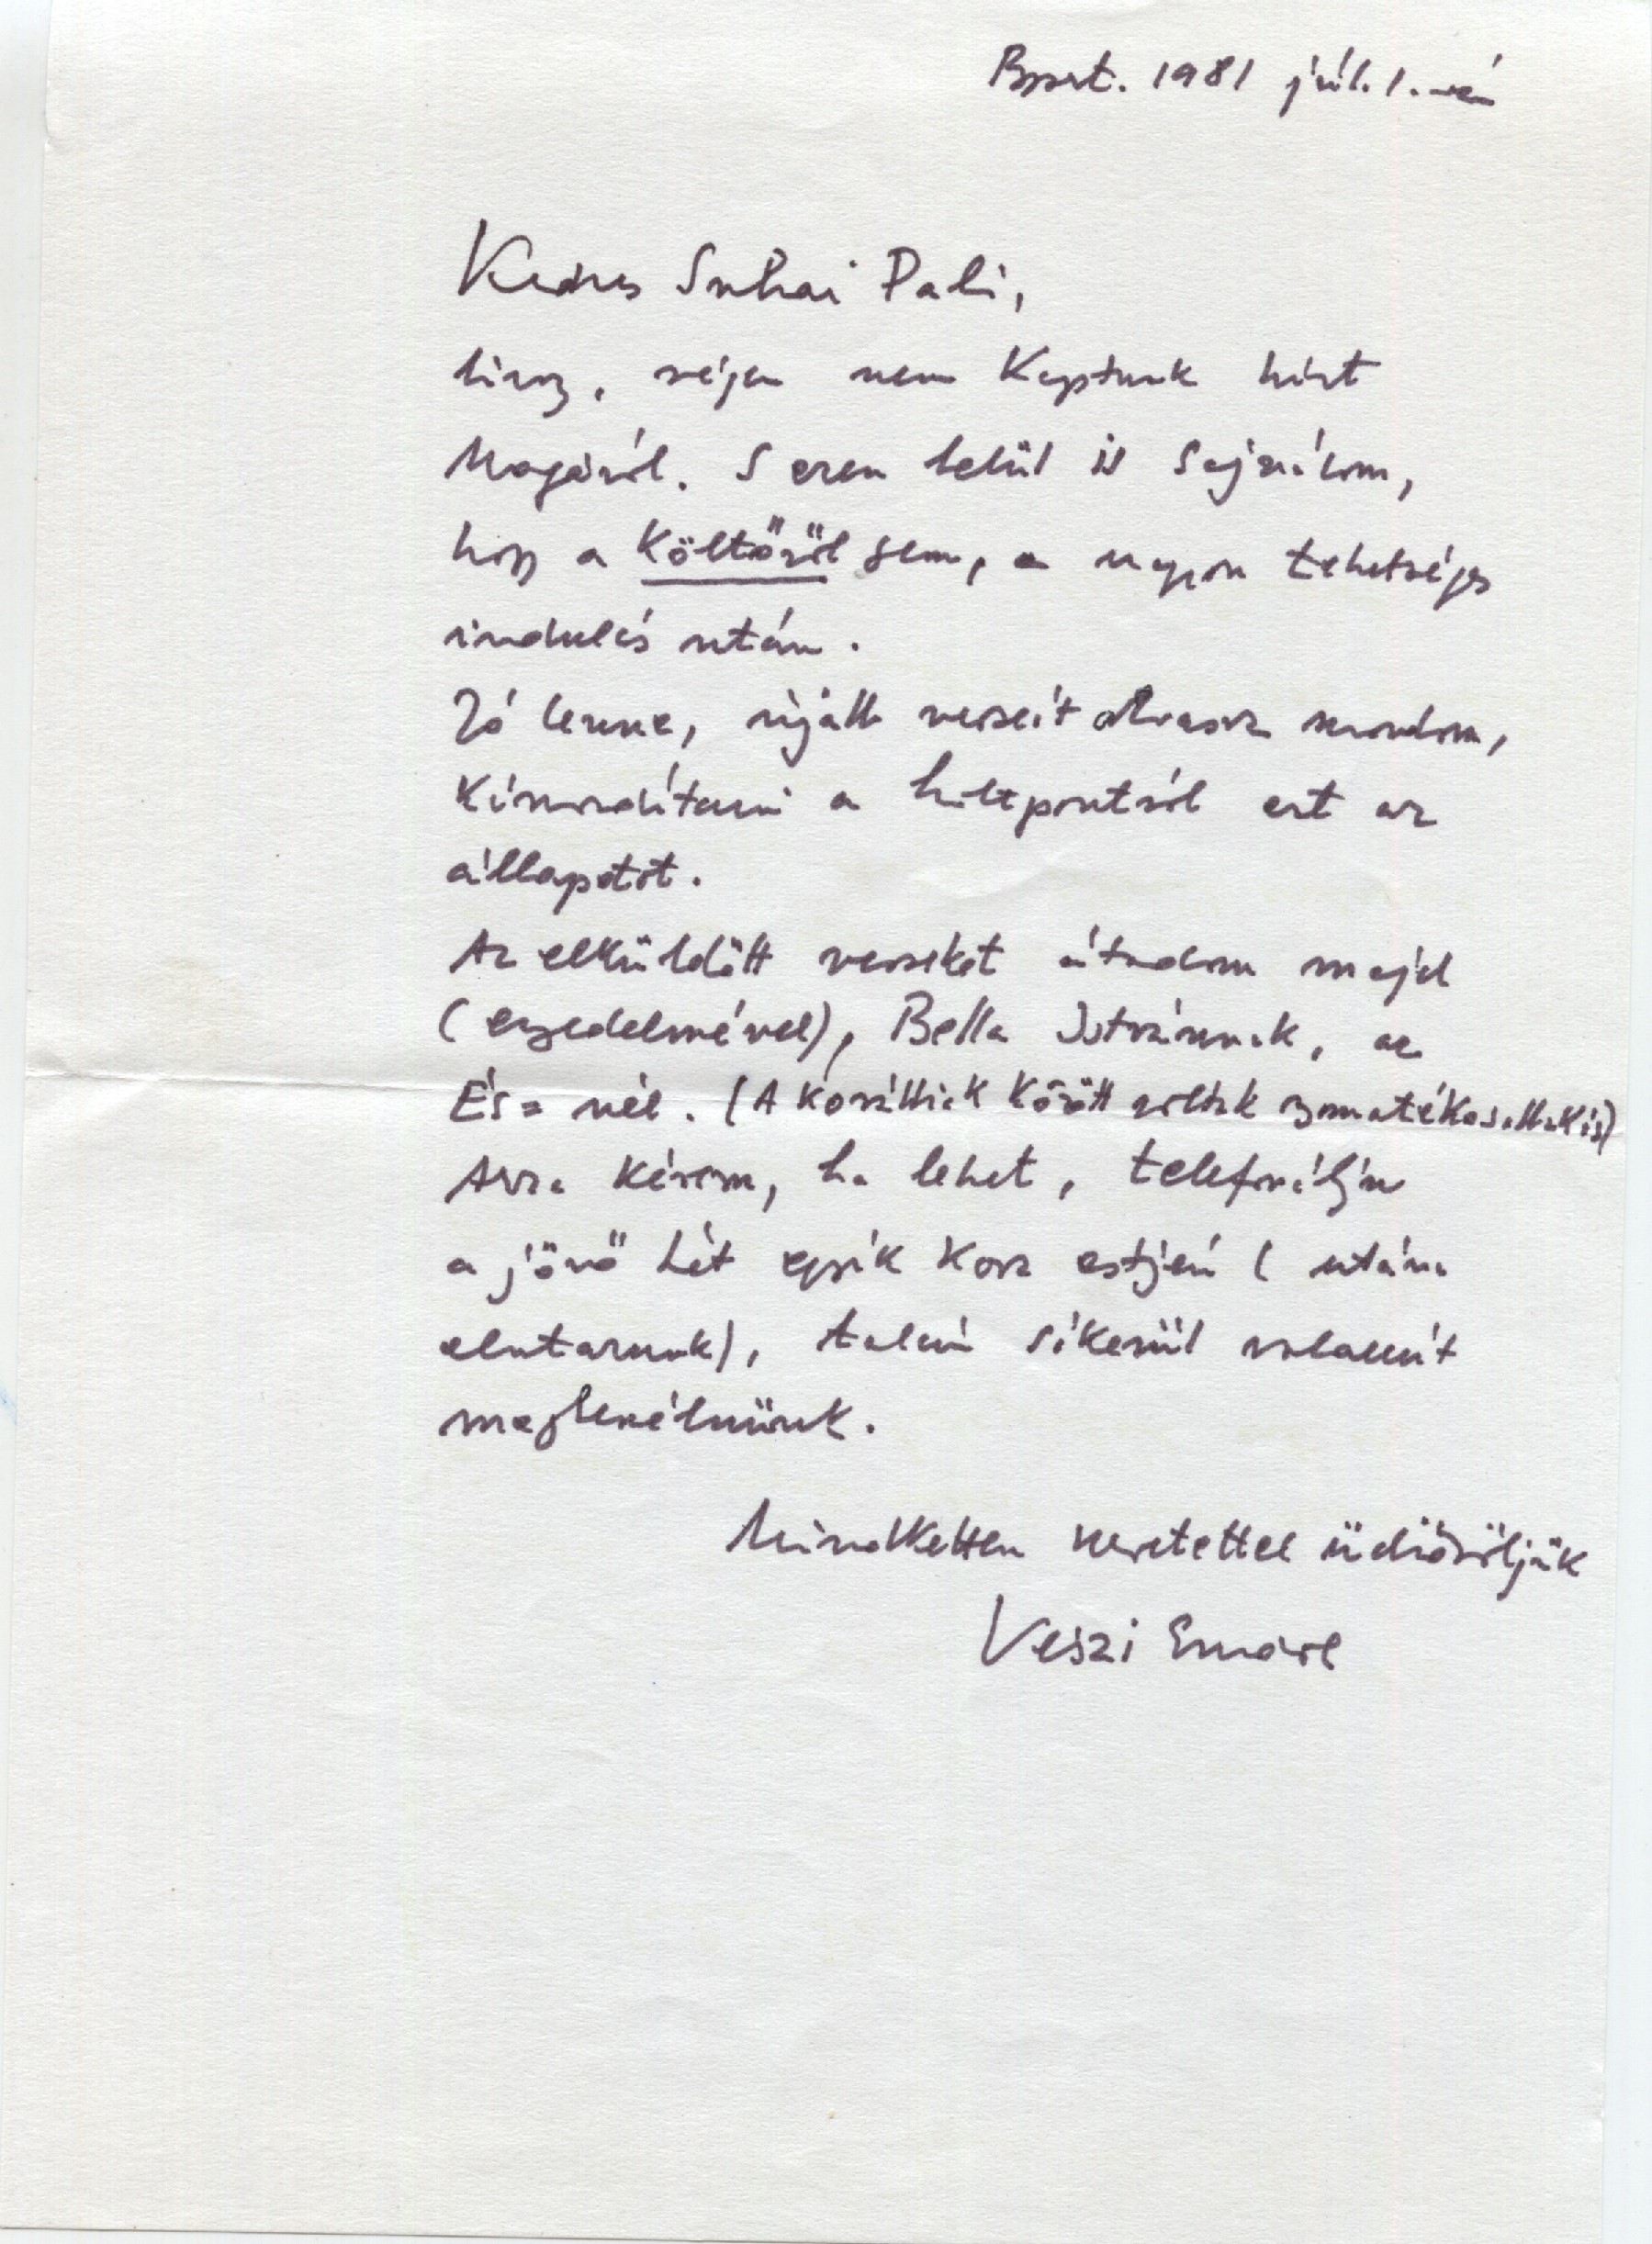 Bpest. 1981 júl. 1.-én
Kedves Suhai Pali,
bizony, régen nem Kaptunk hírt
Magáról. S ezen belül is Sajnálom,
hogy a Költőről sem, a nagyon tehetséges
indulás után.
Jó lenne, újabb verseit olvasva mondom,
Kimozdítani a holtpontról ezt az
állapotot.
Az elküldött verseket átadom majd
(engedelmével), Bella Istvánnak, az
És=nél. (A korábbiak Között voltak zsomatékosabbak is)
Arra Kérem, ha lehet, telefonáljon
a jövő hét egyik Kora estjén ( utána
elutazunk), talán sikerül valamit
megbeszélnünk.
Mindketten szeretettel üdvözöljük
Vészi Endre